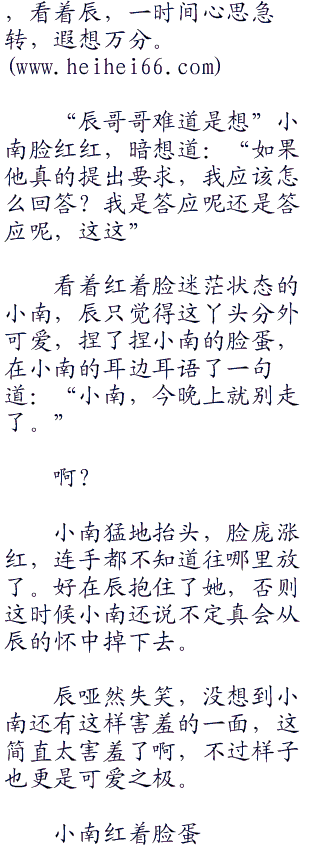 ，看着辰，一时间心思急
转，遐想万分。
(www.heihei66.com)
“辰哥哥难道是想”小
南脸红红，暗想道：“如果
他真的提出要求，我应该怎
么回答？我是答应呢还是答
应呢，这这”
看着红着脸迷茫状态的
小南，辰只觉得这丫头分外
可爱，捏了捏小南的脸蛋，
在小南的耳边耳语了一句
道：“小南，今晚上就别走
了。”
啊？
小南猛地抬头，脸庞涨
红，连手都不知道往哪里放
了。好在辰抱住了她，否则
这时候小南还说不定真会从
辰的怀中掉下去。
辰哑然失笑，没想到小
南还有这样害羞的一面，这
简直太害羞了啊，不过样子
也更是可爱之极。
小南红着脸蛋